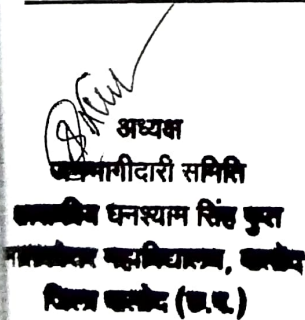 अध्यक्ष
जनभागीदारी समिति
शासकीय घनश्याम सिंह गुप्त
स्नातकोत्तर महाविद्यालय, बालोद
जिला बालोद (छ.ग.)